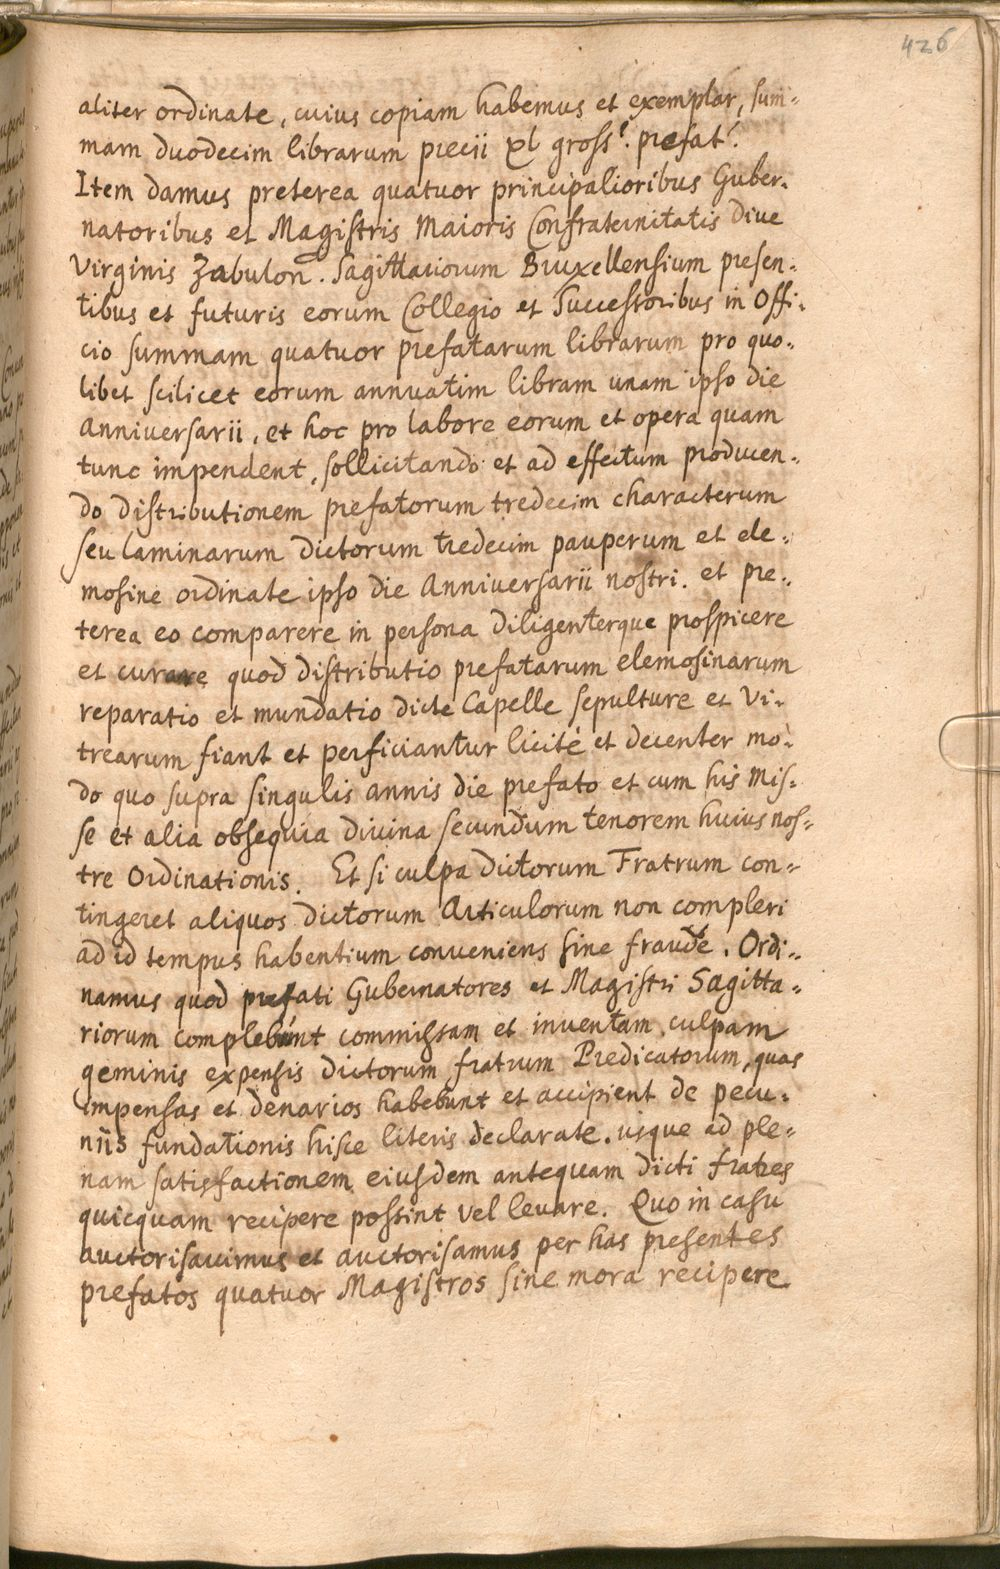 426
aliter ordinate, cuius copiam habemus et exemplar, sum-
mam duodecim librarum precii xl gross: prefat:
Item damus preterea quatuor principalioribus Guber-
natoribus et Magistris Maioris Confraternitatis Dive
Virginis Zabulon. Sagittariorum Bruxellensium presen-
tibus et futuris eorum Collegio et Successoribus in Offi-
cio summam quatuor prefatarum librarum pro quo-
libet scilicet eorum annuatim libram unam ipso die
Anniversarii, et hoc pro labore eorum et opera quam
tunc impendent, sollicitando et ad effectum producen-
do distributionem prefatorum tredecim characterum
seu laminarum dictorum tredecim pauperum et ele-
mosine ordinate ipso die Anniversarii nostri. et pre-
terea eo comparere in persona diligenterque prospicere
et curare quod distributio prefatarum elemosinarum
reparatio et mundatio dicte Capelle sepulture et Vi-
trearum fiant et perficiantur licité et decenter mo-
do quo supra singulis annis die prefato et cum his Mis-
se et alia obsequia divina secundum tenorem huius nos-
tre Ordinationis. Et si culpa dictorum Fratrum con-
tingeret aliquos dictorum Articulorum non compleri
ad id tempus habentium conveniens sine fraude. Ordi-
namus quod prefati Gubernatores et Magistri Sagitta-
riorum complebunt commissam et inventam culpam
geminis expensis dictorum fratrum Predicatorum, quas
impensas et denarios habebunt et accipient de pecu-
niis fundationis hisce literis declarate. usque ad ple-
nam satisfactionem eiusdem antequam dicti fratres
quicquam recipere possint vel levare. Quo in casu
auctorisavimus et auctorisamus per has presentes
prefatos quatuor Magistros sine mora recipere